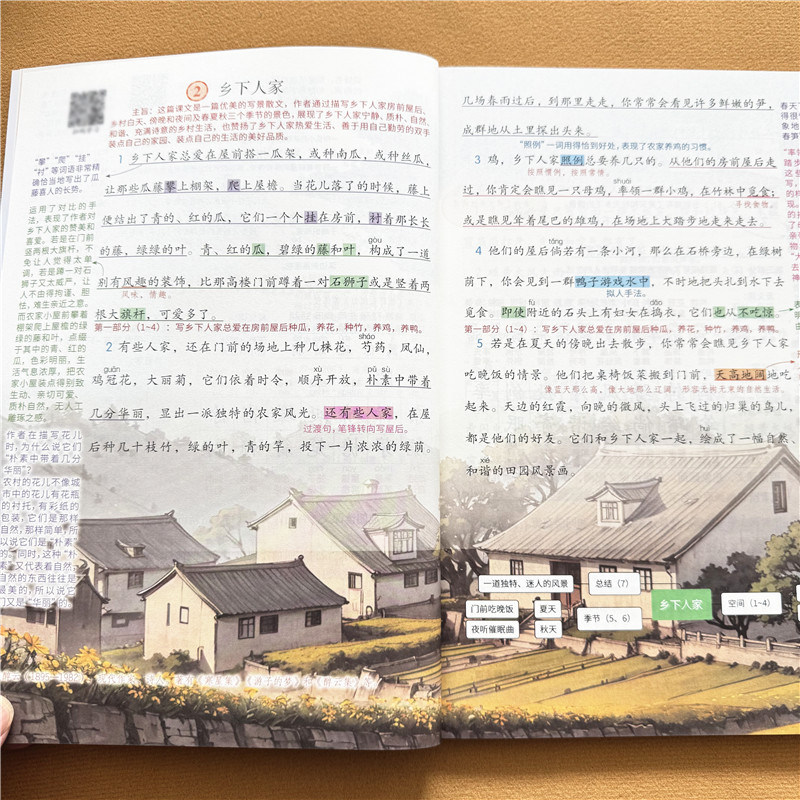 ② 乡下人家
主旨：这篇课文是一篇优美的写景散文，作者通过描写乡下人家房前屋后、
乡村白天、傍晚和夜间及春夏秋三个季节的景色，展现了乡下人家宁静、质朴、自然、
和谐、充满诗意的乡村生活，也赞扬了乡下人家热爱生活、善于用自己勤劳的双手
装点自己的家园、装点自己的生活的美好品质。
“攀”“爬”“挂”
“衬”等词语非常精
确恰当地写出了瓜
藤喜人的长势。
1 乡下人家总爱在屋前搭一瓜架，或种南瓜，或种丝瓜，
让那些瓜藤攀上棚架，爬上屋檐。当花儿落了的时候，藤上
便结出了青的、红的瓜，它们一个个挂在房前，衬着那长长
的藤，绿绿的叶。青、红的瓜，碧绿的藤和叶，构成了一道
gòu
别有风趣的装饰，比那高楼门前蹲着一对石狮子或是竖着两
风味，情趣。
根大旗杆，可爱多了。
第一部分（1~4）：写乡下人家总爱在房前屋后种瓜，养花，种竹，养鸡，养鸭。
运用了对比的手
法，表现了作者对
乡下人家的赞美和
喜爱。若是在门前
竖两根大旗杆，不
免让人觉得太单
调，若是蹲一对石
狮子又太威严，让
人不由得拘谨、胆
怯，难生亲近之意。
而农家小屋前攀着
棚架爬上屋檐的绿
绿的藤和叶，点缀
于其中的青、红的
瓜，色彩明丽，生
活气息浓厚，把农
家小屋装点得别致
生动、亲切可爱、
质朴自然，无人工
雕琢之感。
2 有些人家，还在门前的场地上种几株花，芍药，凤仙，
sháo
鸡冠花，大丽菊，它们依着时令，顺序开放，朴素中带着
guān xù pǔ sù
几分华丽，显出一派独特的农家风光。还有些人家，在屋
过渡句，笔锋转向写屋后。
后种几十枝竹，绿的叶，青的竿，投下一片浓浓的绿荫。
作者在描写花儿
时，为什么说它们
“朴素中带着几分
华丽”？
农村的花儿不像城
市中的花儿有花瓶
的衬托，有彩纸的
包装，它们是那样
自然，那样简单，所
以说它们是“朴素”
的。同时，这种“朴
素”又代表着自然之
自然的东西往往是
最美的，所以说它
们又是“华丽”的。
几场春雨过后，到那里走走，你常常会看见许多鲜嫩的笋，
成群地从土里探出头来。
“照例”一词用得恰到好处，表现了农家养鸡的习惯。
3 鸡，乡下人家照例总要养几只的。从他们的房前屋后走
按照惯例，按照常情。
shuài
过，你肯定会瞧见一只母鸡，率领一群小鸡，在竹林中觅食；
寻找食物。
或是瞧见耸着尾巴的雄鸡，在场地上大踏步地走来走去。
tǎng
4 他们的屋后倘若有一条小河，那么在石桥旁边，在绿树
荫下，你会见到一群鸭子游戏水中，不时地把头扎到水下去
拟人手法。
觅食。即使附近的石头上有妇女在捣衣，它们也从不吃惊。
fù dǎo
第一部分（1~4）：写乡下人家总爱在房前屋后种瓜，养花，种竹，养鸡，养鸭。
5 若是在夏天的傍晚出去散步，你常常会瞧见乡下人家
吃晚饭的情景。他们把桌椅饭菜搬到门前，天高地阔地吃
起来。天边的红霞，向晚的微风，头上飞过的归巢的鸟儿，
都是他们的好友。它们和乡下人家一起，绘成了一幅自然、
huì
和谐的田园风景画。
xié
一道独特、迷人的风景
总结（7）
门前吃晚饭
夏天
夜听催眠曲
秋天
季节（5、6）
乡下人家
空间（1~4）